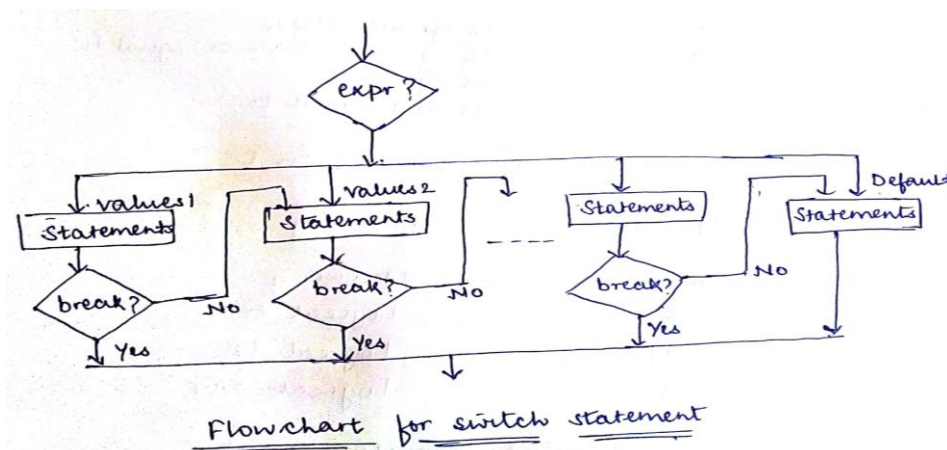 expr?
values1
values2
Default
Statements
Statements
Statements
Statements
break?
No
break?
No
break?
No
Yes
Yes
Yes
Flowchart for switch statement